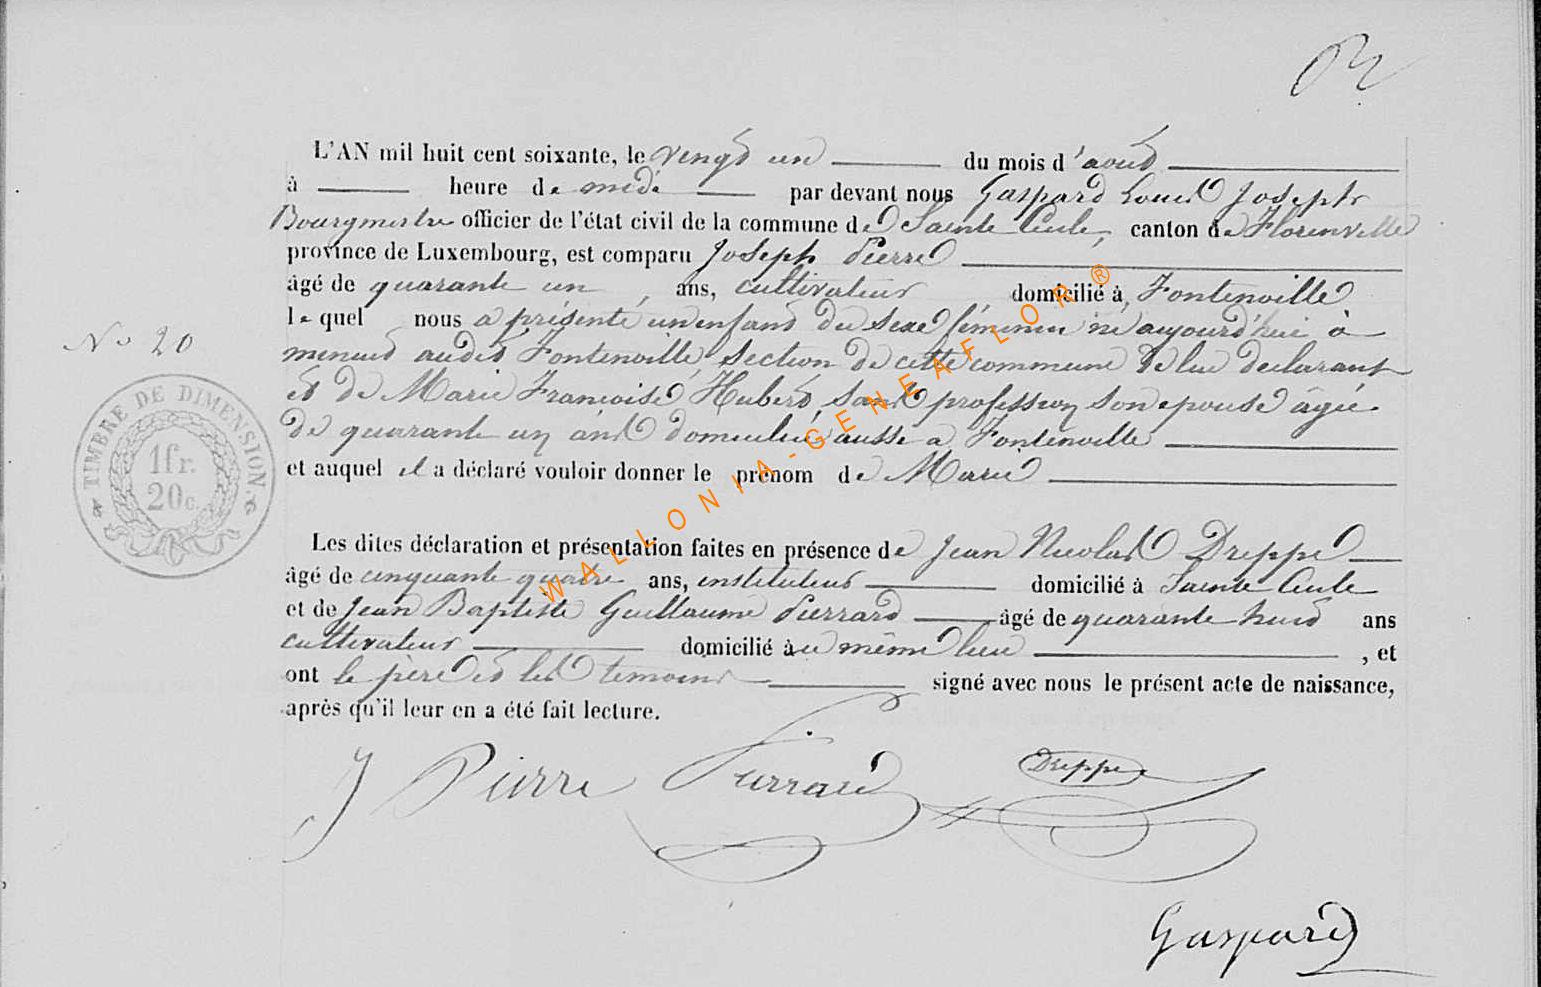 L'AN mil huit cent soixante, le vingt un du mois d'août
à heure de midi par devant nous Gaspard Louis Joseph
Bourgmestre officier de l'état civil de la commune de Sainte Cécile, canton de Florenville
province de Luxembourg, est comparu Joseph Pierre
âgé de quarante un ans, cultivateur domicilié à Fontenoille
lequel nous a présenté un enfant du sexe féminin né aujourd'hui à
minuit audit Fontenoille, section de cette commune de lui declarant
et de Marie Françoise Hubert, sans profession son epouse âgée
de quarante un ans domiciliée aussi a Fontenoille
et auquel il a déclaré vouloir donner le prénom de Marie
No 20
TIMBRE DE DIMENSION.
1fr.
20c.
Les dites déclaration et présentation faites en présence de Jean Nicolas Dreppe
âgé de cinquante quatre ans, instituteur domicilié à Sainte Cécile
et de Jean Baptiste Guillaume Pierrard âgé de quarante huit ans
cultivateur domicilié au même lieu , et
ont le père et les témoins signé avec nous le présent acte de naissance,
après qu'il leur en a été fait lecture.
J Pierre Pierrard Dreppe
Gaspard
WALLONIA-GENEAFLOR®